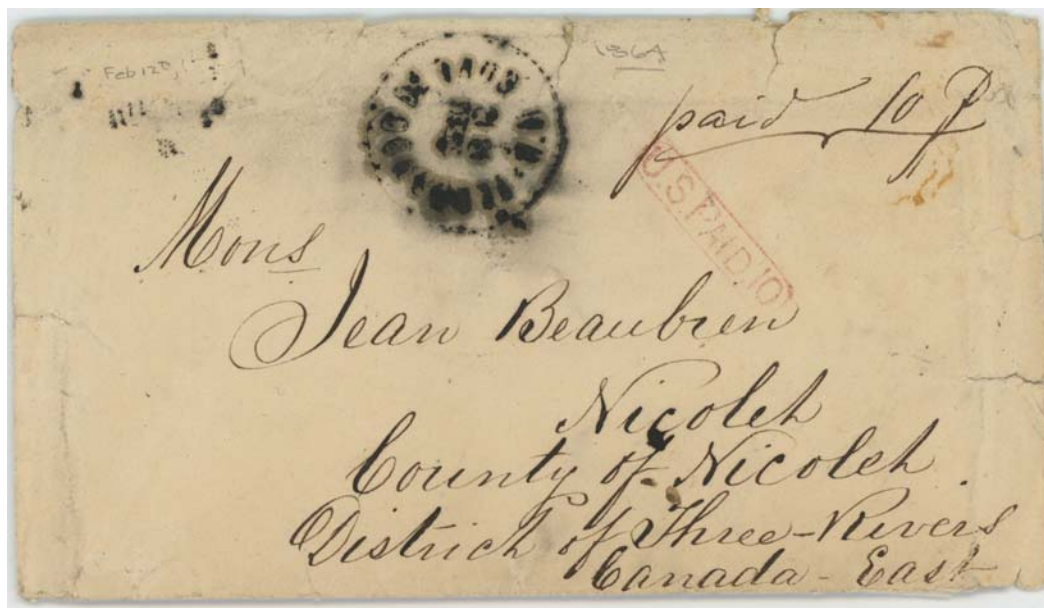 1864
paid 10 P
U.S. PAID. 10
Mons
Jean Beaubien
Nicolet
County of Nicolet.
District of Three-Rivers
Canada - East